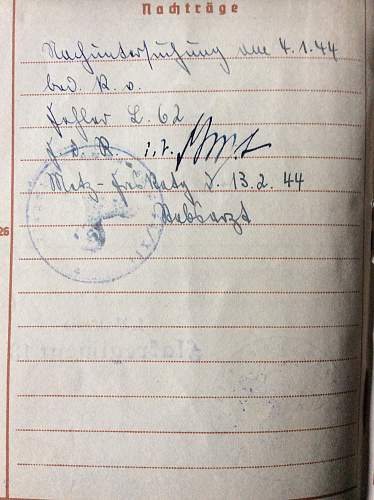 Nachträge
Nachuntersuchung am 4.1.44
bed. k. v.
Fehler L. 62
F. d. R.
Metz- d. 13.2.44
Stabsarzt
26